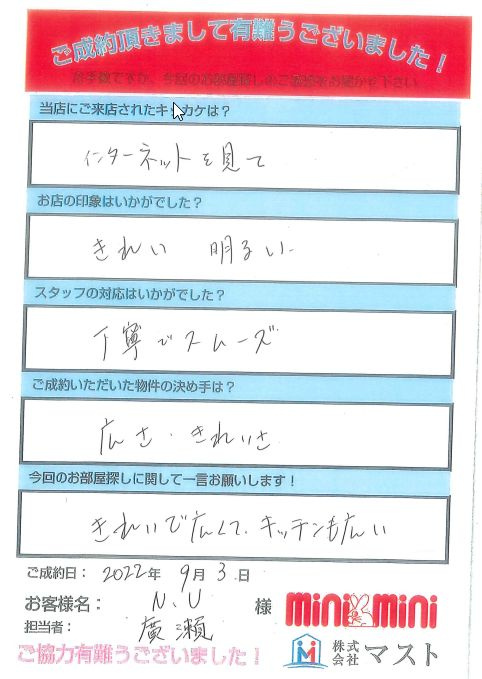 ご成約頂きまして有難うございました！
お手数ですが、今回のお部屋探しのご感想をお聞かせ下さい
当店にご来店されたキッカケは？
インターネットを見て
お店の印象はいかがでした？
きれい 明るい
スタッフの対応はいかがでした？
丁寧でスムーズ
ご成約いただいた物件の決め手は？
広さ・きれいさ
今回のお部屋探しに関して一言お願いします！
きれいで広くて、キッチンも広い
ご成約日： 2022年 9月 3日
お客様名： N.U 様
担当者： 廣瀬
minimini
株式会社マスト
ご協力有難うございました！